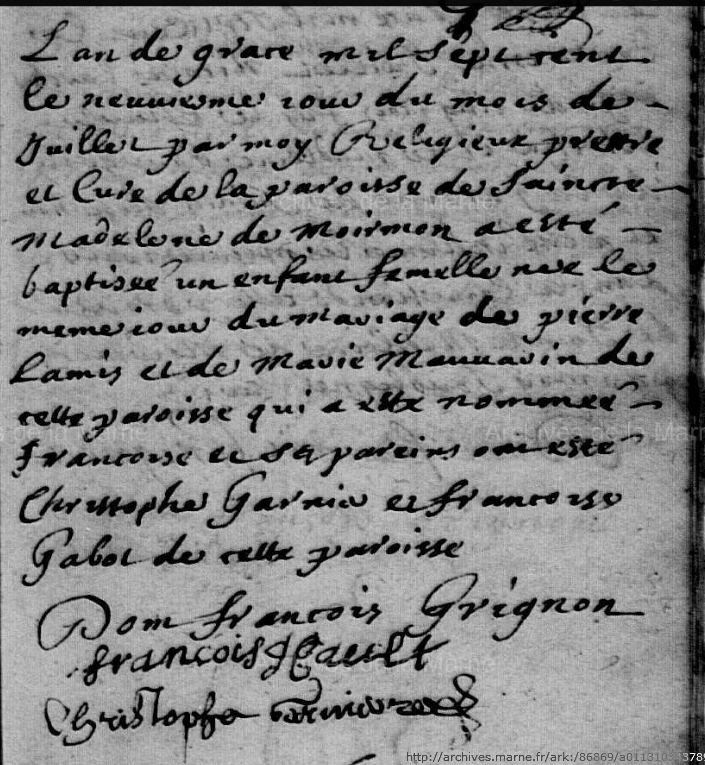 Lan de grace mil sept cent
le neuuiesme iour du mois de
Juillet par moy Religieux prestre
et Cure de la paroisse de Saincte
Madelene de Moirmon a esté
baptiseé un enfant femelle nee le
meme iour du mariage de pierre
Lamis et de Marie Mauuarin de
cette paroisse qui a este nommeé
francoise et ses pareins ont esté
Christophe Garnier et francoise
Gabot de cette paroisse
Dom francois Grignon
francois
Christophe Garnier
http://archives.marne.fr/ark:/86869/a011310